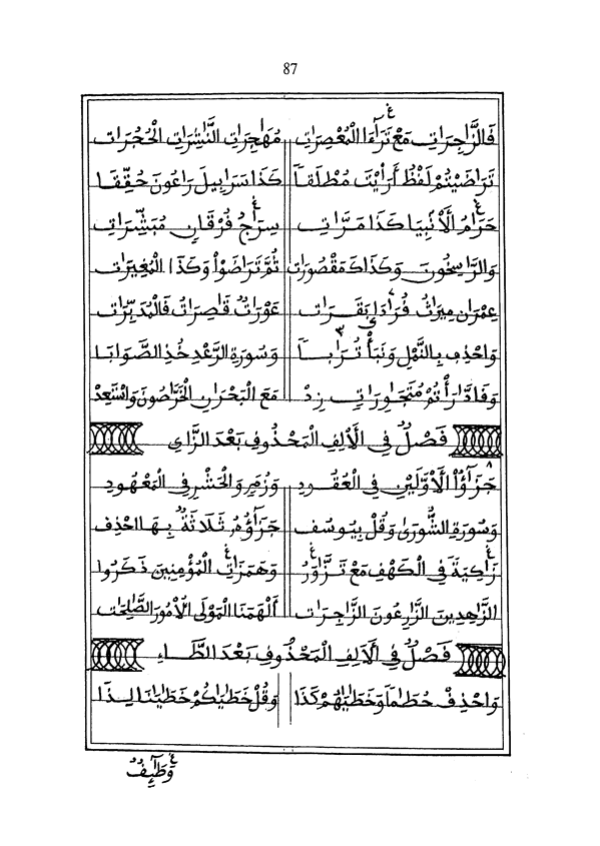 87
فَالزَّٰجِرَاتِ مَعْ تَرَٰٓءَا الْمُعْصِرَٰتِ مُهَٰجِرَٰتِ النَّٰشِرَٰتِ الْحُجُرَاتْ
تَرَاضَيْتُمْ لَفْظُ أَرَٰيْتَ مُطْلَقَا كَذَا سَرَٰبِيلَ رَٰعُونَ حُقِّقَا
حَرَٰمُ الْأَنْبِيَا كَذَا مَرَّاتِ سِرَٰجُ فُرْقَانِ مُبَشِّرَاتِ
وَالرَّاسِخُونَ وَكَذَاكَ مَقْصُورَاتْ ثُمَّ تَرَاضَوْا وَكَذَا الْمُغِيرَاتْ
عِمْرَانَ مِيرَاثُ فُرَادَا بَقَرَاتِ عَوْرَاتُ قَاصِرَاتُ فَالْمُدَبِّرَاتْ
وَاحْذِفْ بِالنَّمْلِ وَنَبَأْ تُرَٰبَا وَسُورَةِ الرَّعْدِ خُذِ الصَّوَابَا
وَفَادَّٰرَأْتُمْ مُتَجَٰوِرَاتِ زِدْ مَعَ الْبَحْرَانِ الْخَرَّٰصُونَ وَاسْتَعِدْ
فَصْلٌ فِي الْأَلِفِ الْمَحْذُوفِ بَعْدَ الزَّايِ
جَزَٰٓؤُا الْأَوَّلَيْنِ فِي الْعُقُودِ وَزُمَرٍ وَالْحَشْرِ فِي الْمَعْهُودِ
وَسُورَةِ الشُّورَىٰ وَقُلْ بِيُوسُفِ جَزَٰٓؤُهُ ثَلَاثَةٌ بِهَا احْذِفِ
زَٰكِيَةً فِي الْكَهْفِ مَعْ تَزَّٰوَرُ وَهَمَزَٰتِ الْمُؤْمِنِينَ ذَكَرُوا
الزَّٰهِدِينَ الزَّٰرِعُونَ الزَّٰجِرَاتْ أَلْهَمَنَا الْمَوْلَى الْأُمُورَ الصَّٰلِحَٰتْ
فَصْلٌ فِي الْأَلِفِ الْمَحْذُوفِ بَعْدَ الطَّاءِ
وَاحْذِفْ حُطَٰمًا وَخَطَٰيَٰهُمْ كَذَا وَقُلْ خَطَٰيَٰكُمْ خَطَٰيَٰنَا لِذَا
وَطَآئِفٌ